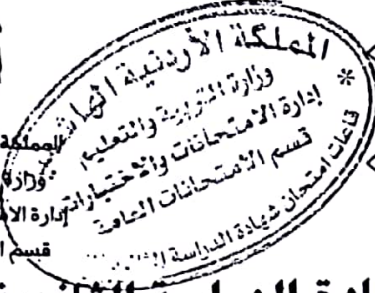 المملكة الأردنية الهاشمية
وزارة التربية والتعليم
إدارة الامتحانات والاختبارات
قسم الامتحانات العامة
* قاعات امتحان شهادة الدراسة
المملكة
وزارة
إدارة
قسم